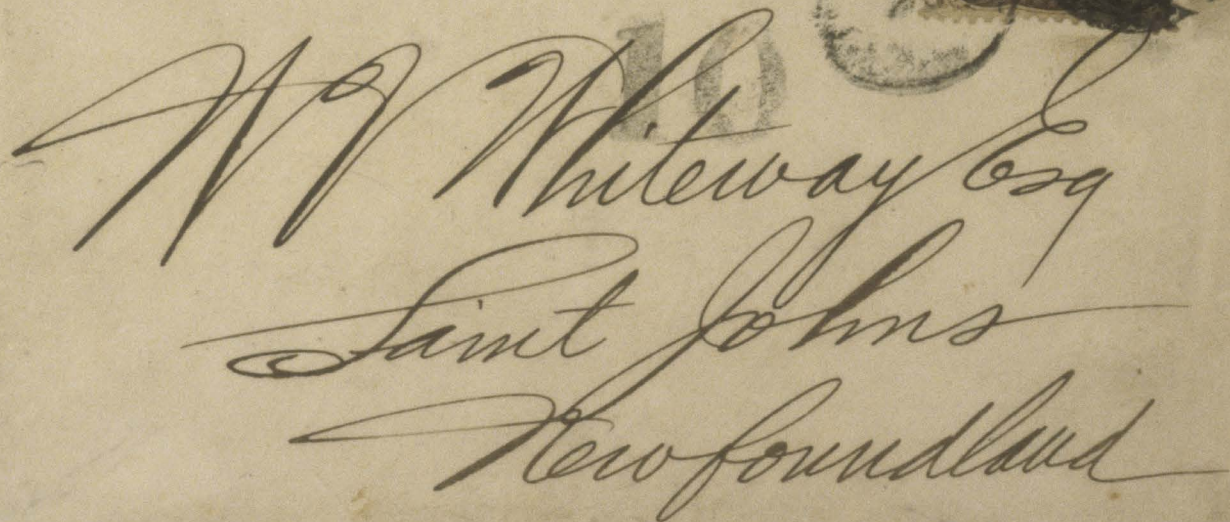 10
W V Whiteway Esq
Saint Johns
Newfoundland